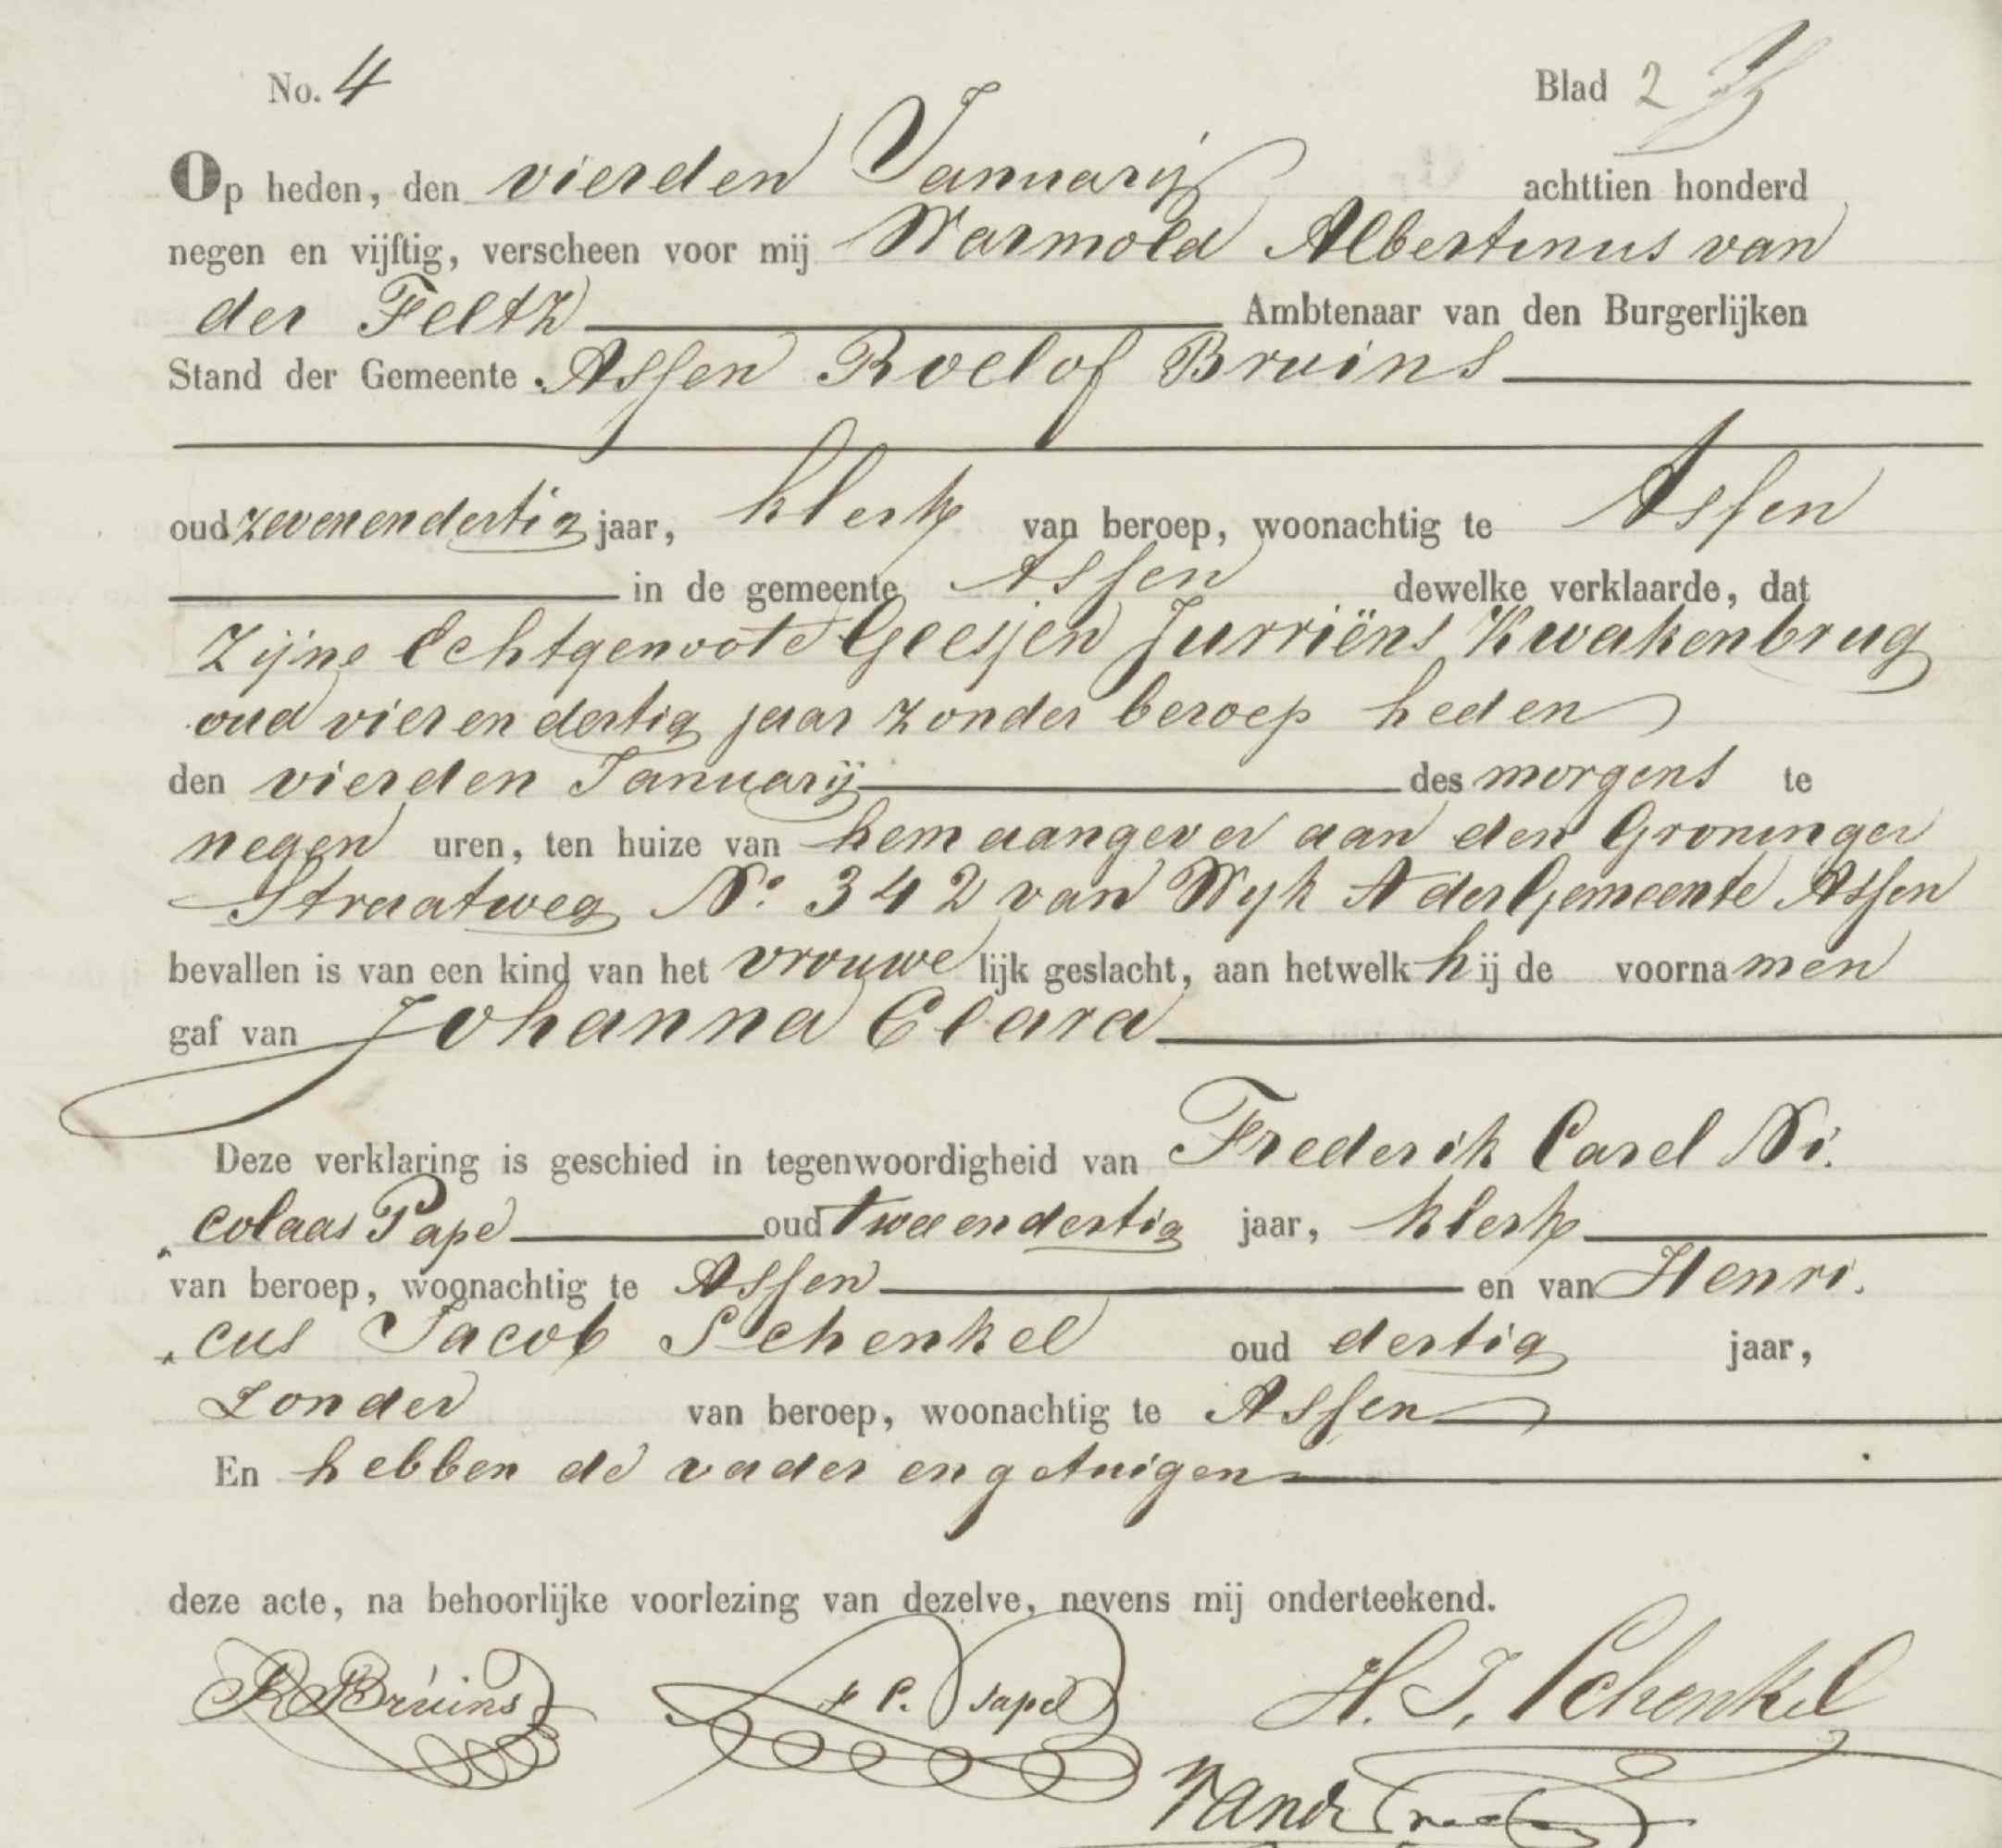 No. 4 Blad 2
Op heden, den vierden Januarij achttien honderd
negen en vijftig, verscheen voor mij Warmold Albertinus van
der Feltz Ambtenaar van den Burgerlijken
Stand der Gemeente Assen Roelof Bruins
oud zevenendertig jaar, klerk van beroep, woonachtig te Assen
in de gemeente Assen dewelke verklaarde, dat
zijne Echtgenoote Geesjen Jurriëns Kwakenbrug
oud vierendertig jaar zonder beroep heden
den vierden Januarij des morgens te
negen uren, ten huize van hem aangever aan den Groninger
Straatweg No. 342 van Wijk A der Gemeente Assen
bevallen is van een kind van het vrouwelijk geslacht, aan hetwelk hij de voornamen
gaf van Johanna Clara
Deze verklaring is geschied in tegenwoordigheid van Frederik Carel Ni.
colaas Pape oud tweeendertig jaar, klerk
van beroep, woonachtig te Assen en van Henri.
cus Jacob Schenkel oud dertig jaar,
zonder van beroep, woonachtig te Assen
En hebben de vader en getuigen
deze acte, na behoorlijke voorlezing van dezelve, nevens mij onderteekend.
R Bruins F C. Pape H. J. Schenkel